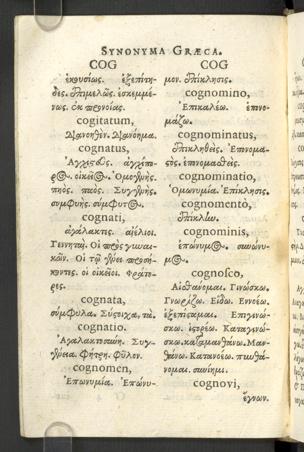 SYNONYMA GRÆCA.
COG
ἑκουσίως. ἐξεπίτη-
δες. ἐπιμελῶς. ἐσκεμμέ-
νως. ἐκ προνοίας.
cogitatum,
Διανοηθὲν. Διανόημα.
cognatus,
Ἀγχιστεὺς. ἀγχίσπο-
ρος. οἰκεῖος. Ὁμογενὴς.
πηὸς. παὸς. Συγγενὴς.
συμφυὴς. σύμφυτος.
cognati,
ἀγάλακτες. ἀγέλιοι.
Γεννηταί. Οἱ πρὸς γυναι-
κῶν. Οἱ τῷ γένει προσή-
κοντες. οἱ οἰκεῖοι. Φράτο-
ρες.
cognata,
σύμφυλα. Σύστοιχα, τὰ.
cognatio.
Ἀγαλακτοσύνη. Συγ-
γένεια. Φήτρη. Φῦλον.
cognomen,
Ἐπωνυμία. Ἐπώνυ-
COG
μον. ἐπίκλησις.
cognomino,
Ἐπικαλέω. ἐπονο-
μάζω.
cognominatus,
ἐπικληθεὶς. Ἐπονομα-
στὸς. ἐπονομασθείς.
cognominatio,
Ὁμωνυμία. Ἐπίκλησις.
cognomentò,
ἐπίκλην.
cognominis,
ἐπώνυμος. συνώνυ-
μος.
cognosco,
Αἰσθάνομαι. Γινώσκω.
Γνωρίζω. Εἴδω. Ἐννοέω.
ἐξεπίσταμαι. Ἐπιγνώ-
σκω. ἱστορέω. Καταγινώ-
σκω. καταμανθάνω. Μαν-
θάνω. Κατανοέω. πυνθά-
νομαι. συνίημι.
cognovi,
ἔγνων.